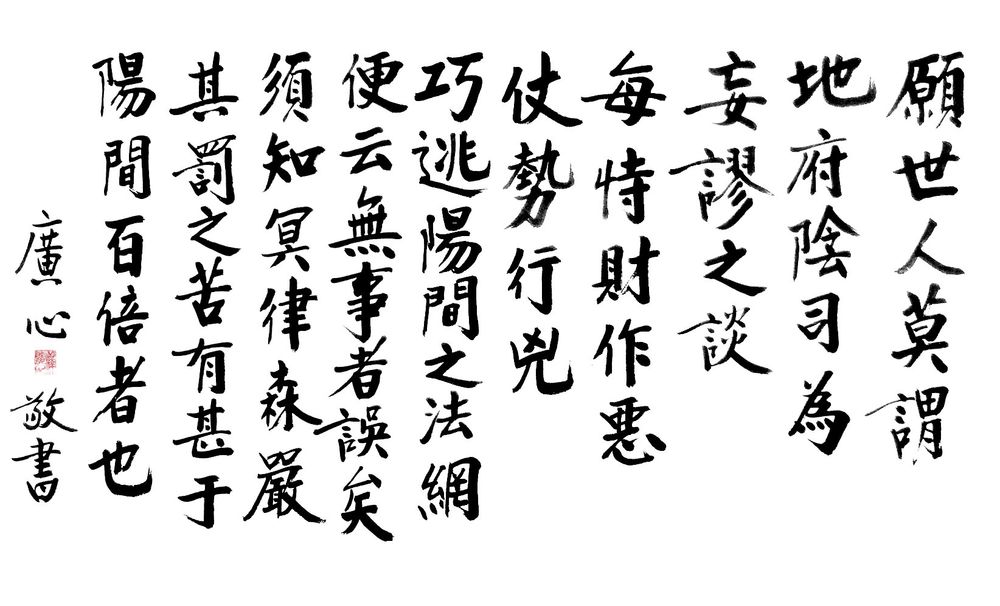 願世人莫謂
地府陰司為
妄謬之談
每恃財作惡
仗勢行兇
巧逃陽間之法網
便云無事者誤矣
須知冥律森嚴
其罰之苦有甚于
陽間百倍者也
廣心
敬書